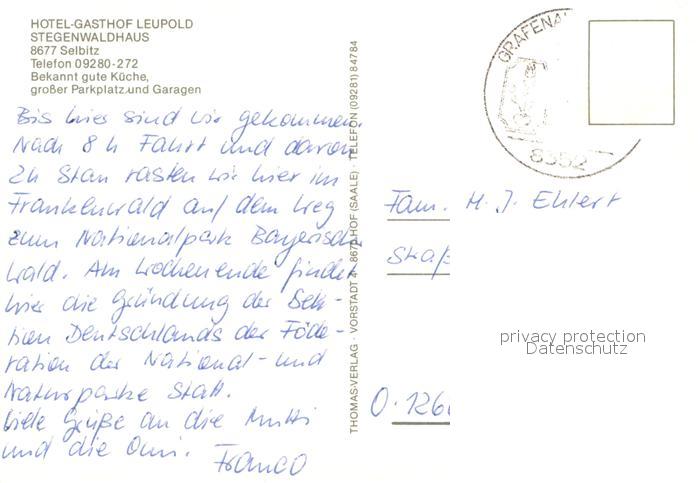 HOTEL-GASTHOF LEUPOLD
STEGENWALDHAUS
8677 Selbitz
Telefon 09280-272
Bekannt gute Küche,
großer Parkplatz und Garagen
Bis hier sind wir gekommen.
Nach 8 h Fahrt und davon
2h Stau rasten wir hier im
Frankenwald auf dem Weg
zum Nationalpark Bayerisch
wald. Am Wochenende findet
hier die Gründung der Sek-
tion Deutschlands der Föde-
ration der National- und
Naturparke Statt.
Viele Grüße an die Mutti
und die Omi. Franco
THOMAS-VERLAG · VORSTADT 4 · 8670 HOF (SAALE) · TELEFON (09281) 84784
GRAFENA
8352
Fam. H. J. Ehlert
Straß
O-126
privacy protection
Datenschutz